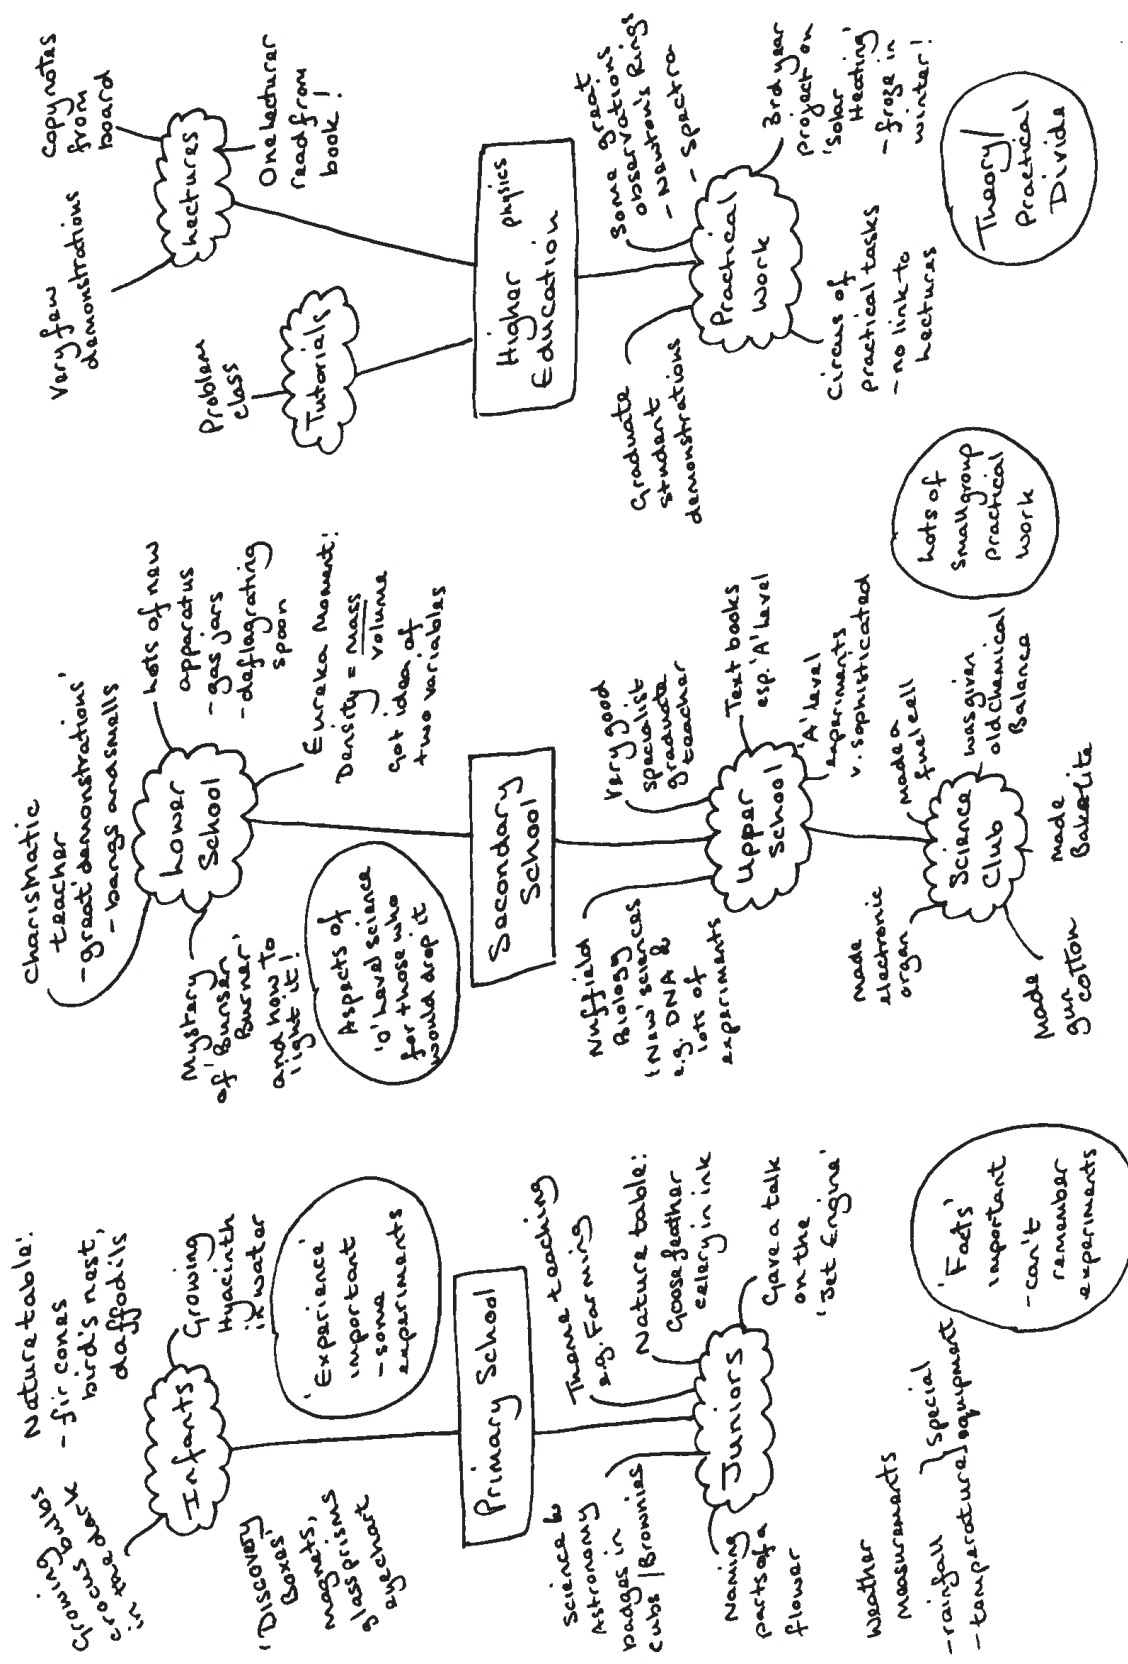 Growing bulbs
crocus
in the dark
Nature table:
- fir cones
bird's nest,
daffodils
Infants
Growing
Hyacinth
in water
'Discovery
Boxes'
magnets,
glass prisms
eyechart
'Experience'
important
- some
experiments
Primary School
Science &
Astronomy
badges in
cubs / Brownies
Theme teaching
e.g. Farming
Nature table:
Goose feather
celery in ink
Juniors
Naming
parts of a
flower
Gave a talk
on the
'Jet Engine'
Weather
measurements
- rainfall
- temperature
special
equipment
'Facts'
important
- can't
remember
experiments
Charismatic
teacher
- great demonstrations'
- bangs and smells
Lower
School
Lots of new
apparatus
- gas jars
- deflagrating
spoon
Mystery
of 'Bunsen
Burner'
and how to
light it!
Eureka Moment!
Density = mass
volume
Got idea of
two variables
Aspects of
'O' level science
for those who
would drop it
Secondary
School
Nuffield
Biology
'New' sciences
e.g. DNA &
lots of
experiments
Very good
specialist
graduate
teacher
Upper
School
Text books
esp. 'A' level
'A' level
experiments
v. sophisticated
made
electronic
organ
made a
fuel cell
Science
Club
was given
old chemical
Balance
Made
gun
cotton
made
Bakelite
Lots of
small group
practical
work
Very few
demonstrations
Copy notes
from
board
Lectures
One lecturer
read from
book!
Problem
class
Tutorials
Higher physics
Education
Graduate
student
demonstrations
Some great
observations
- Newton's Rings
- Spectra
Practical
Work
3rd year
project on
'Solar
Heating'
- froze in
winter!
Circus of
practical tasks
- no link to
Lectures
Theory/
Practical
Divide